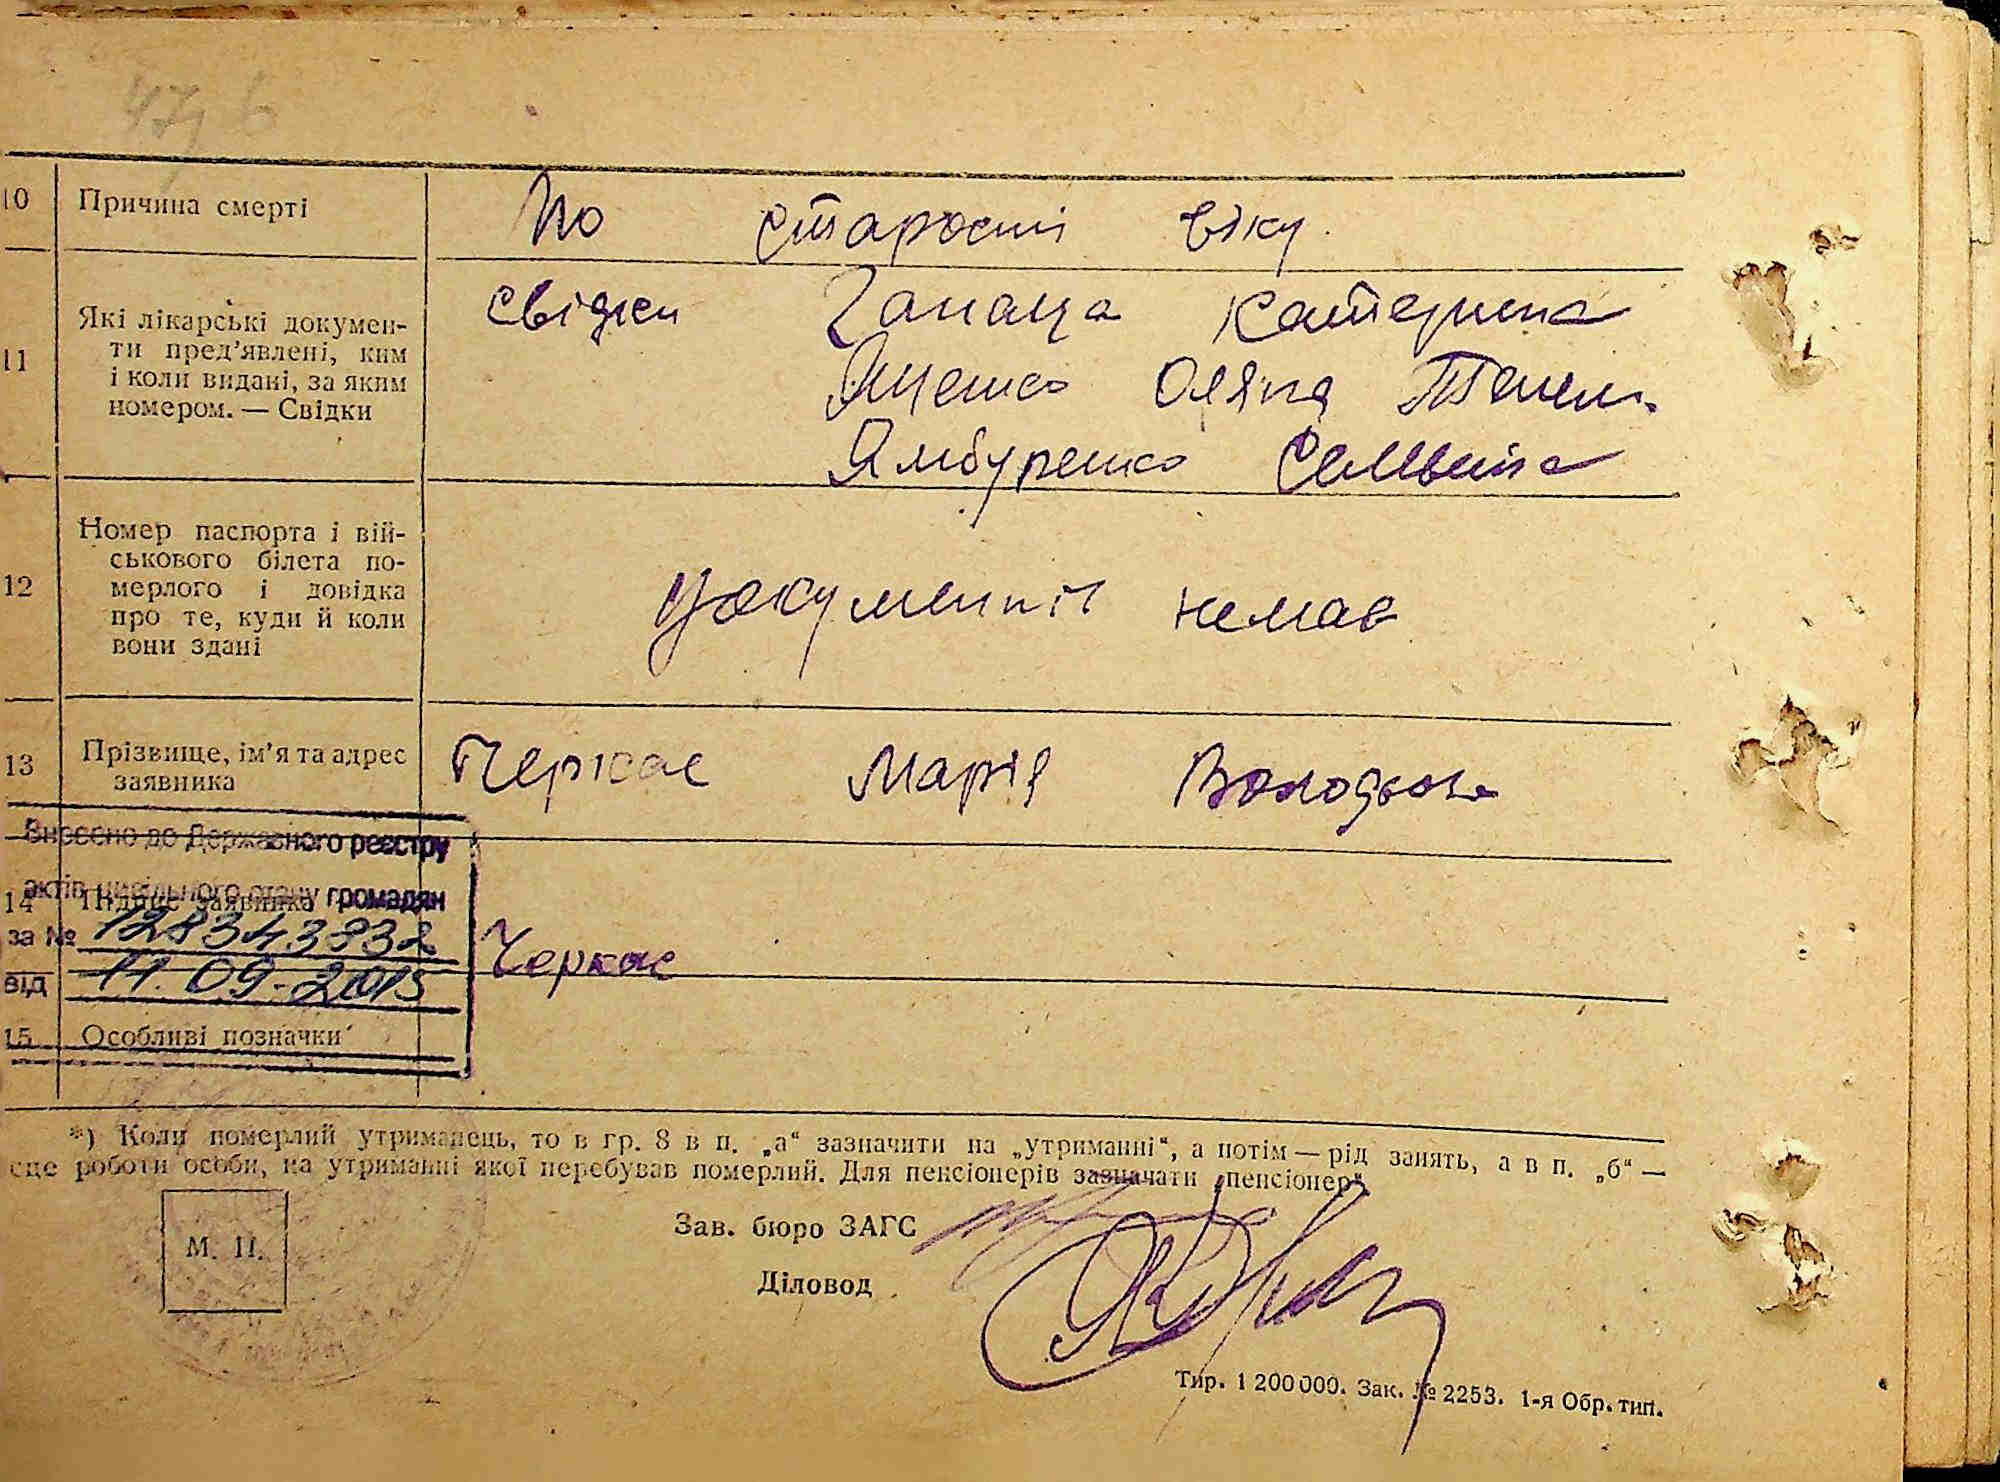 10 Причина смерті По старості віку.
11 Які лікарські докумен-
ти пред'явлені, ким
і коли видані, за яким
номером. — Свідки
свідки Катерина
Яценко
Ямбуренко
12 Номер паспорта і вій-
ськового білета по-
мерлого і довідка
про те, куди й коли
вони здані
Документів немає
13 Прізвище, ім'я та адрес
заявника
Черкас Марія
Внесено до Державного реєстру
актів цивільного стану громадян
14 Підпис заявника
за № 128343832
Черкас
від 11.09.2015
15 Особливі позначки
*) Коли померлий утриманець, то в гр. 8 в п. „а“ зазначити на „утриманні“, а потім — рід занять, а в п. „б“ —
сце роботи особи, на утриманні якої перебував померлий. Для пенсіонерів зазначати „пенсіонер“.
М. П.
Зав. бюро ЗАГС
Діловод
Тир. 1 200 000. Зак. № 2253. 1-я Обр. тип.